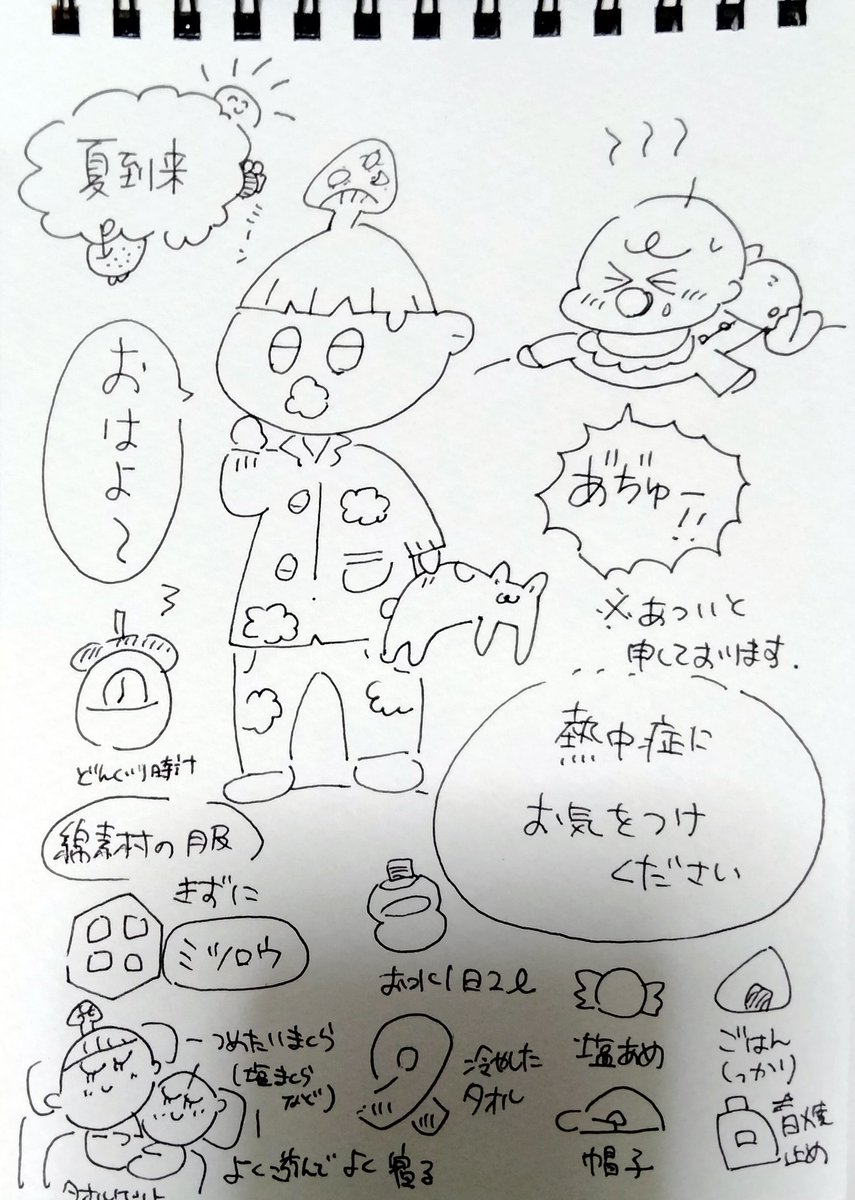 夏到来
おはよ〜
あ゛ぢゅー!!
※あついと
申しております.
どんぐり時計
熱中症に
お気をつけ
ください
綿素材の服
きずに
ミツロウ
お水1日2ℓ
塩あめ
ごはん
しっかり
つめたいまくら
(塩まくら
など)
冷やした
タオル
帽子
日焼
止め
よく遊んでよく寝る
タオルケット